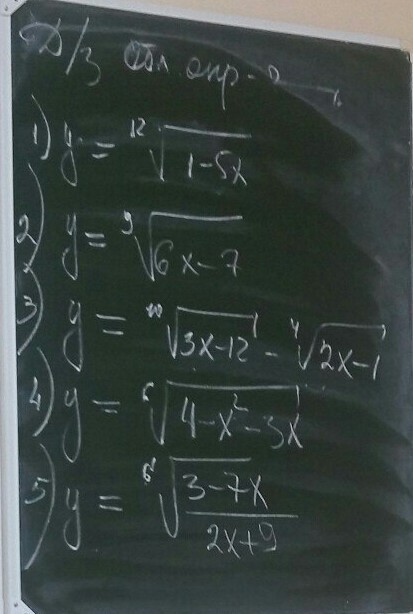 Д/З Обл. опр-
1) y = ¹²√(1-5x)
2) y = ⁹√(6x-7)
3) y = ¹⁰√(3x-12) - ⁴√(2x-1)
4) y = ⁶√(4-x²-3x)
5) y = ⁶√((3-7x)/(2x+9))